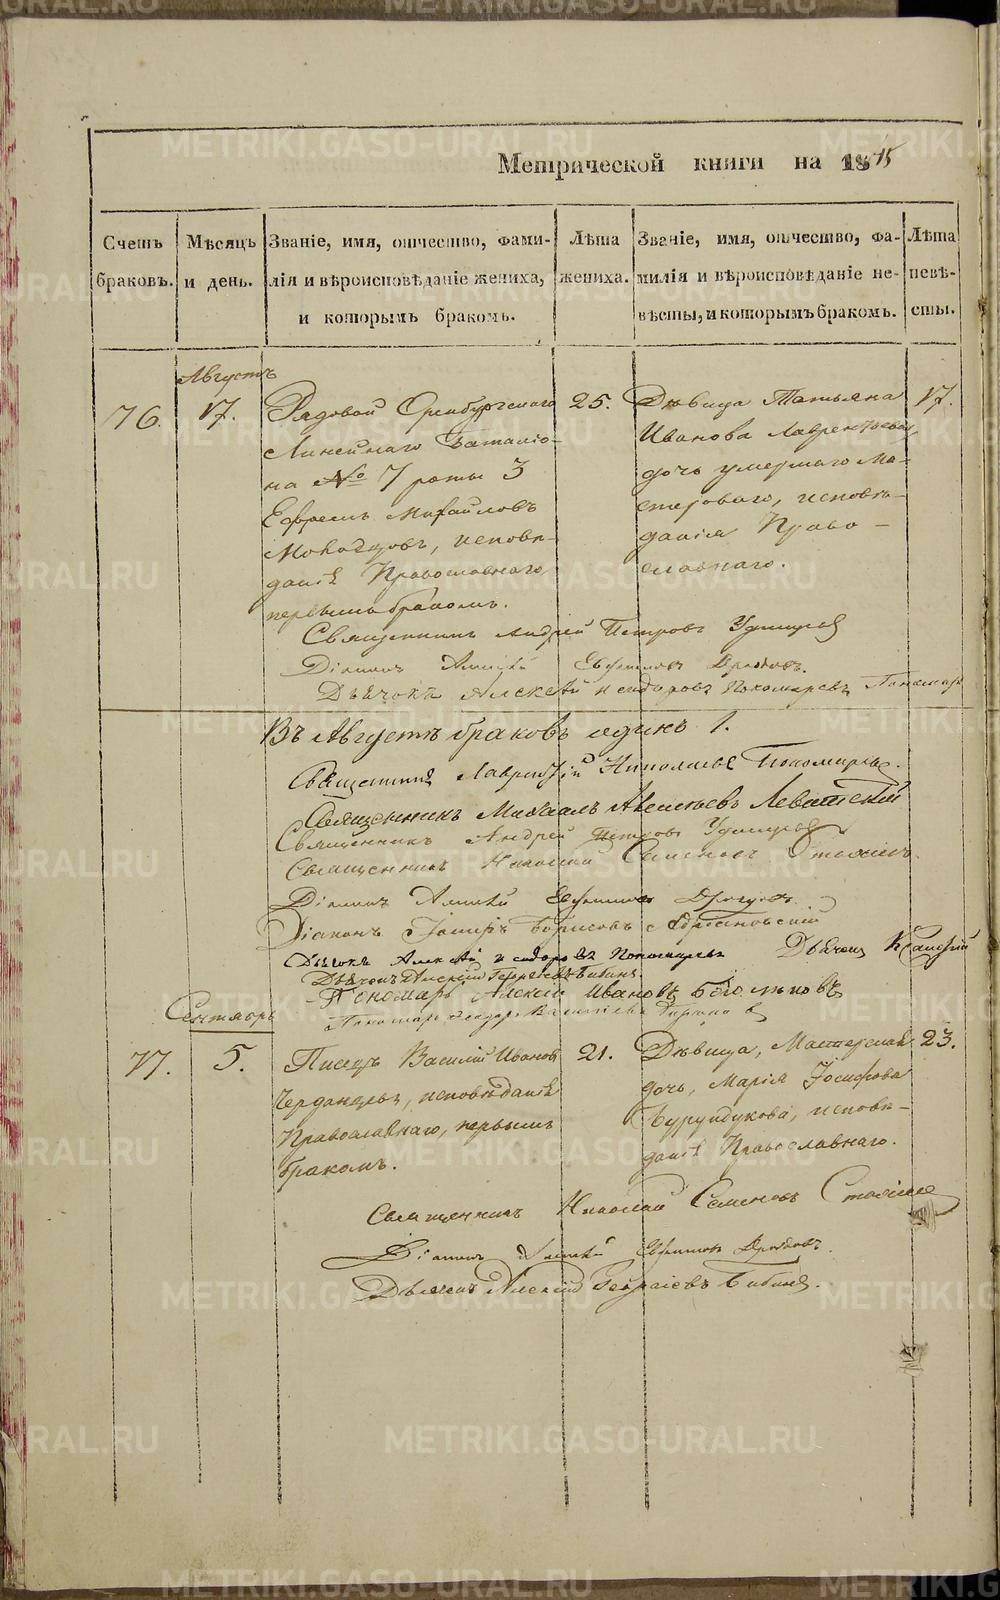 METRIKI.GASO-URAL.RU
Метрической книги на 1845
Счетъ браковъ.
Мѣсяцъ и день.
Званіе, имя, отчество, фами-
лія и вѣроисповѣданіе жениха,
и которымъ бракомъ.
Лѣта жениха.
Званіе, имя, отчество, фа-
милія и вѣроисповѣданіе не-
вѣсты, и которымъ бракомъ.
Лѣта невѣ-
сты.
Августъ
76.
17.
Рядовой Оренбургскаго
Линейнаго Баталіо-
на № 7 роты 3
Ефремъ Михайловъ
исповѣ-
данія Православнаго,
первымъ бракомъ.
25.
Дѣвица Татьяна
Иванова Лаврентьева,
дочь умершаго Ма-
стероваго, исповѣ-
данія Право-
славнаго.
17.
Священникъ Андрей Петровъ Удинцовъ
Діаконъ Алексѣй Дроздовъ.
Дьячокъ Алексѣй Исидоровъ Пономаревъ Пономарь
Въ Августѣ браковъ одинъ 1.
Священникъ Лаврентій Николаевъ Пономаревъ.
Священникъ Михаилъ Левитскій
Священникъ Андрей Петровъ Удинцовъ
Священникъ Николай Семеновъ
Діаконъ Алексѣй
Діаконъ Борисовъ
Дьячокъ Алексѣй Исидоровъ Пономаревъ Дьячекъ
Дьячекъ Алексѣй Георгіевъ Бибинъ.
Пономарь Алексѣй Ивановъ Богомоловъ
Пономарь
Сентябрь
77.
5.
Писецъ Василій Ивановъ
Черданцовъ, исповѣданія
Православнаго, первымъ
бракомъ.
21.
Дѣвица, Мастерская
дочь, Марія Іосифова
Бурундукова, исповѣ-
данія Православнаго.
23.
Священникъ Николай Семеновъ
Діаконъ Алексѣй Дроздовъ.
Дьячекъ Алексѣй Георгіевъ Бибинъ.